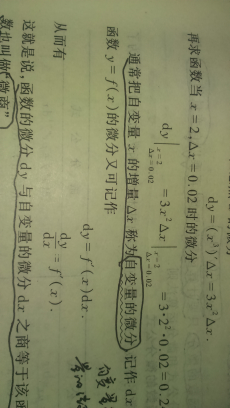 dy=(x³)′Δx=3x²Δx.
再求函数当 x=2,Δx=0.02 时的微分
dy|x=2 Δx=0.02 =3x²Δx|x=2 Δx=0.02 =3·2²·0.02=0.2
通常把自变量 x 的增量 Δx 称为自变量的微分,记作 dx
函数 y=f(x)的微分又可记作
dy=f′(x)dx.
从而有
dy/dx=f′(x).
这就是说,函数的微分 dy 与自变量的微分 dx 之商等于该函
数也叫做“微商”